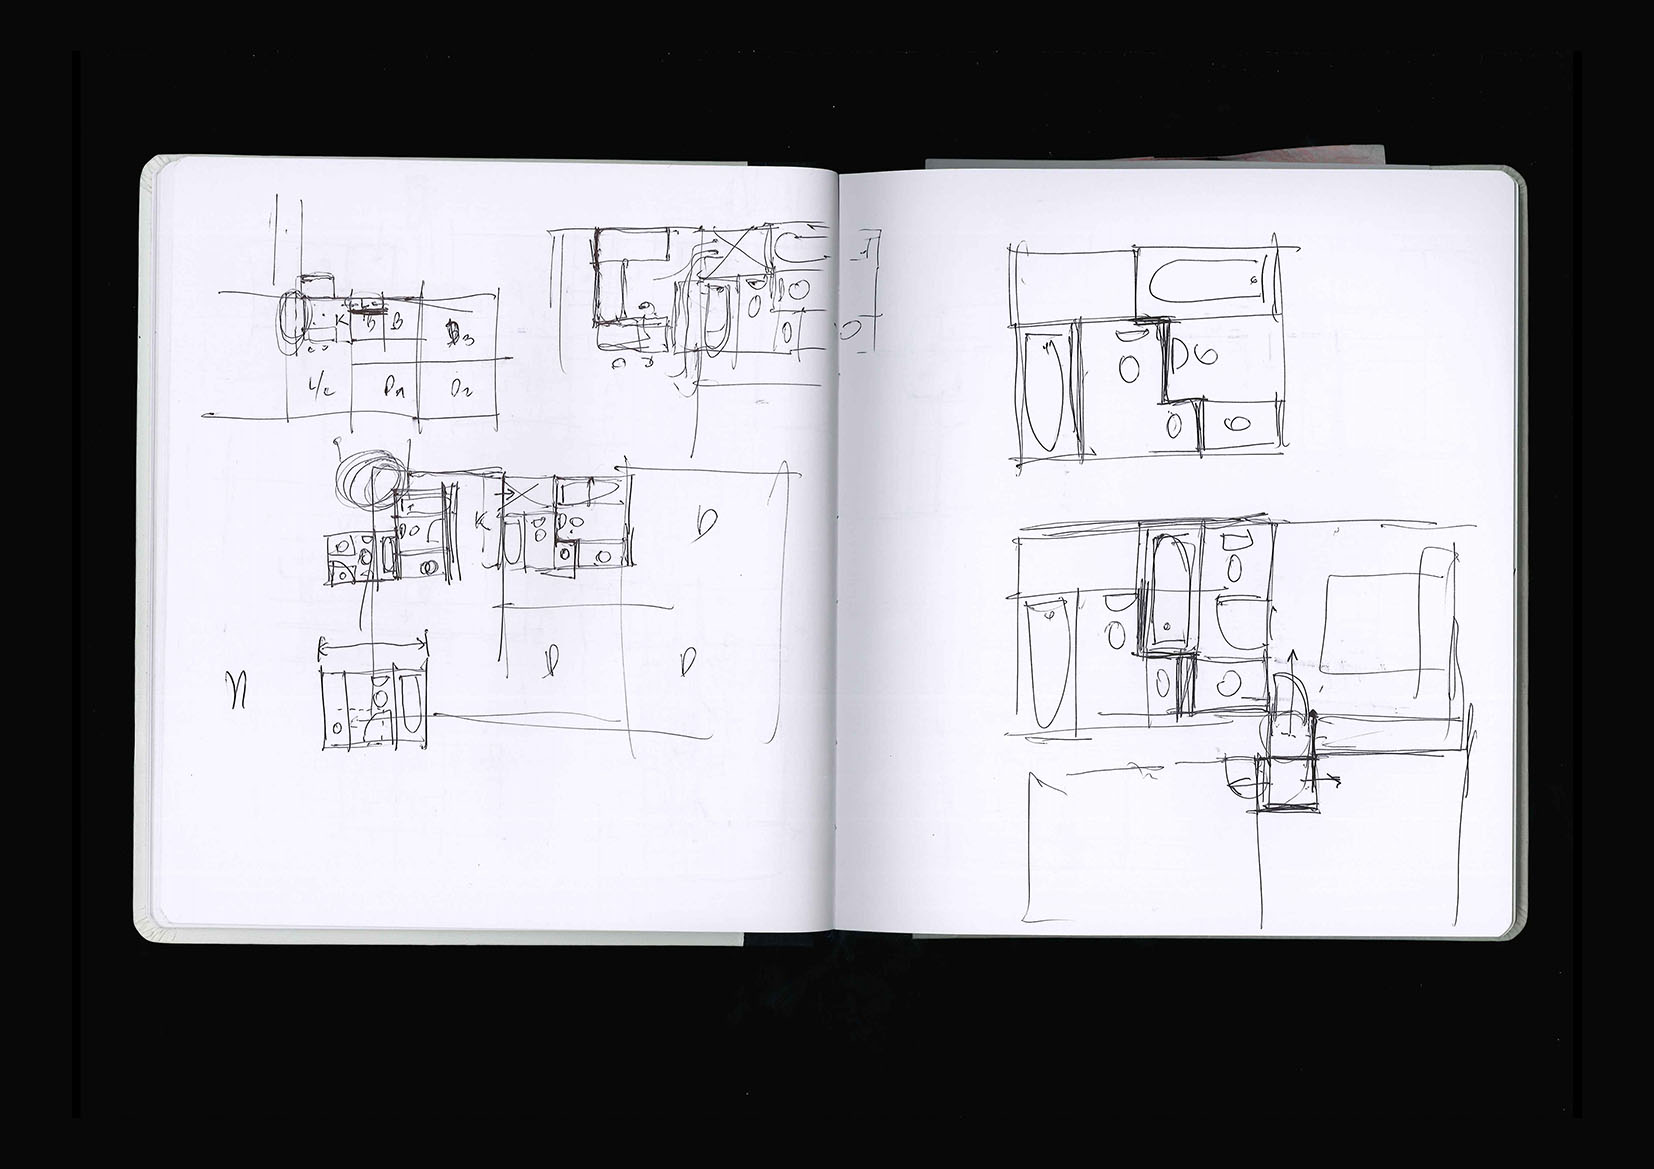 K B B D3
L/C D1 D2
K
D
D D
N